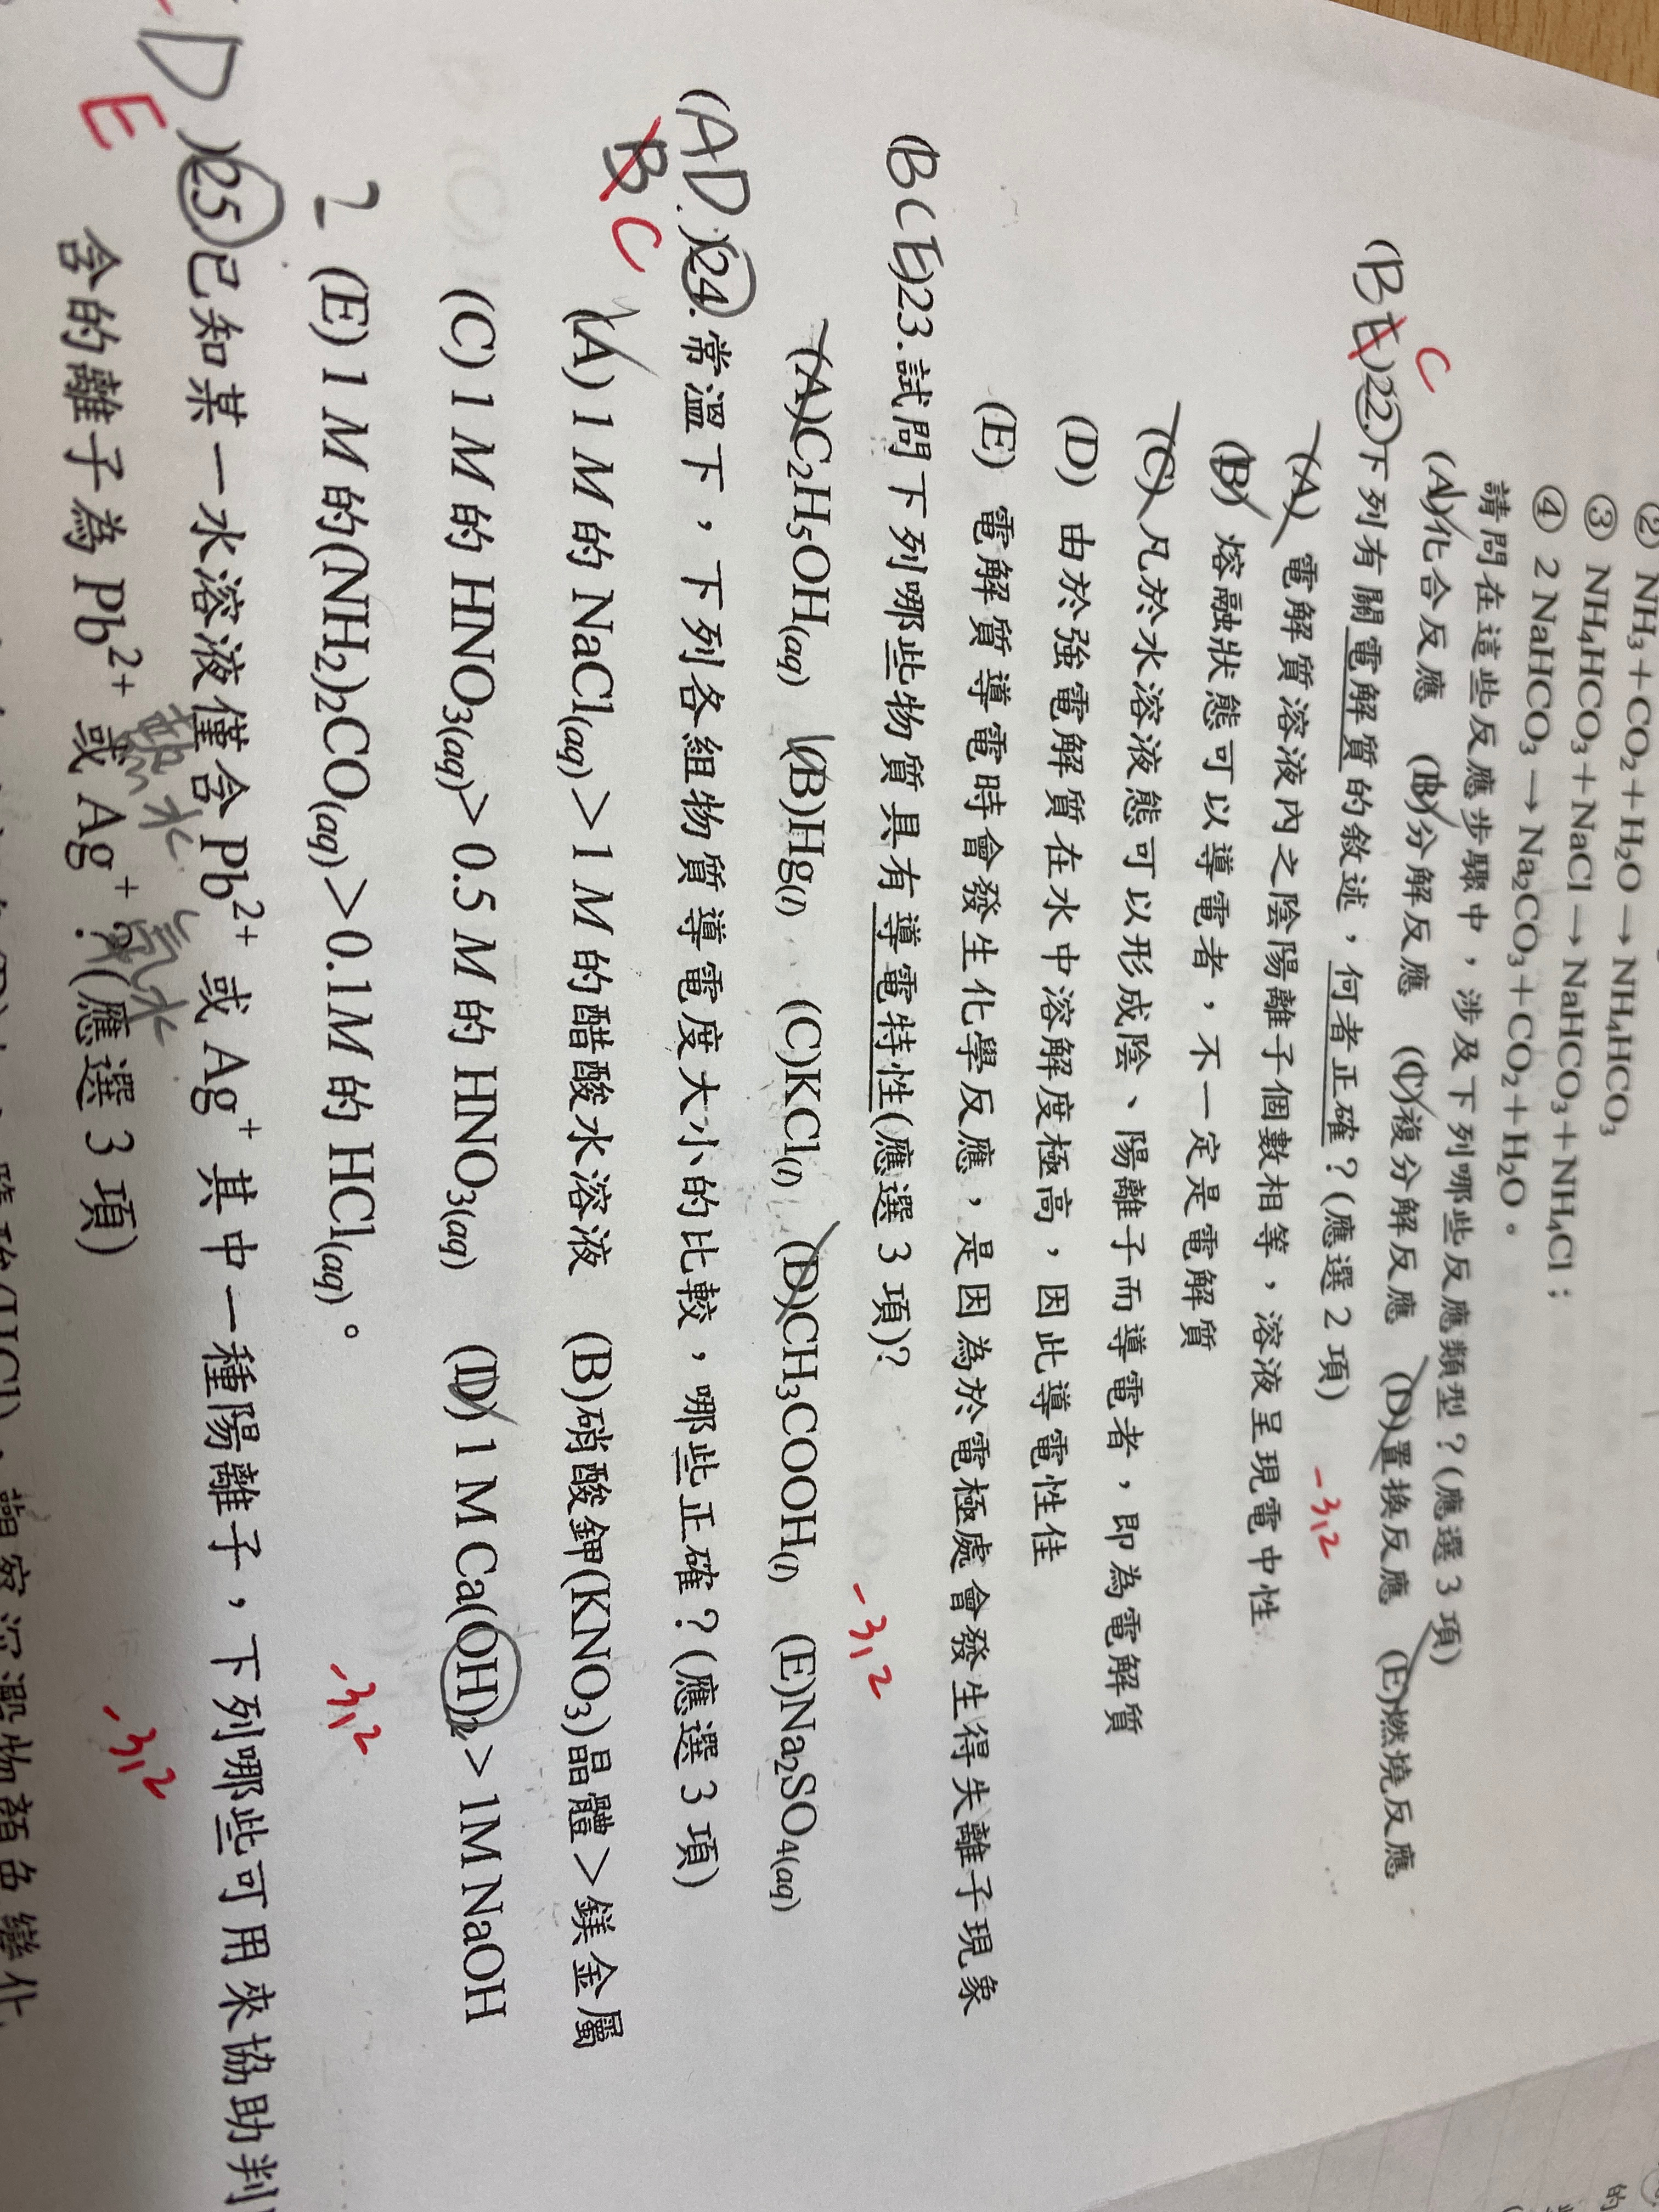 ② NH₃+CO₂+H₂O→NH₄HCO₃
③ NH₄HCO₃+NaCl→NaHCO₃+NH₄Cl;
④ 2 NaHCO₃→Na₂CO₃+CO₂+H₂O。
請問在這些反應步驟中,涉及下列哪些反應類型?(應選3項)
(A)化合反應 (B)分解反應 (C)複分解反應 (D)置換反應 (E)燃燒反應
C
(BE)22.下列有關電解質的敘述,何者正確?(應選2項) -3.2
(A) 電解質溶液內之陰陽離子個數相等,溶液呈現電中性
(B) 熔融狀態可以導電者,不一定是電解質
(C) 凡於水溶液態可以形成陰、陽離子而導電者,即為電解質
(D) 由於強電解質在水中溶解度極高,因此導電性佳
(E) 電解質導電時會發生化學反應,是因為於電極處會發生得失離子現象
(BCE)23.試問下列哪些物質具有導電特性(應選3項)? -3.2
(A)C₂H₅OH(aq) (B)Hg(l) (C)KCl(l) (D)CH₃COOH(l) (E)Na₂SO₄(aq)
(AD)24.常溫下,下列各組物質導電度大小的比較,哪些正確?(應選3項)
B C
(A) 1 M的NaCl(aq)>1 M的醋酸水溶液 (B)硝酸鉀(KNO₃)晶體>鎂金屬
(C) 1 M的HNO₃(aq)>0.5 M的HNO₃(aq) (D) 1 M Ca(OH)₂>1M NaOH
? (E) 1 M的(NH₂)₂CO(aq)>0.1M的HCl(aq)。 -3.2
D )25.已知某一水溶液僅含Pb²⁺或Ag⁺其中一種陽離子,下列哪些可用來協助判
E
含的離子為Pb²⁺或Ag⁺?(應選3項) -3.2